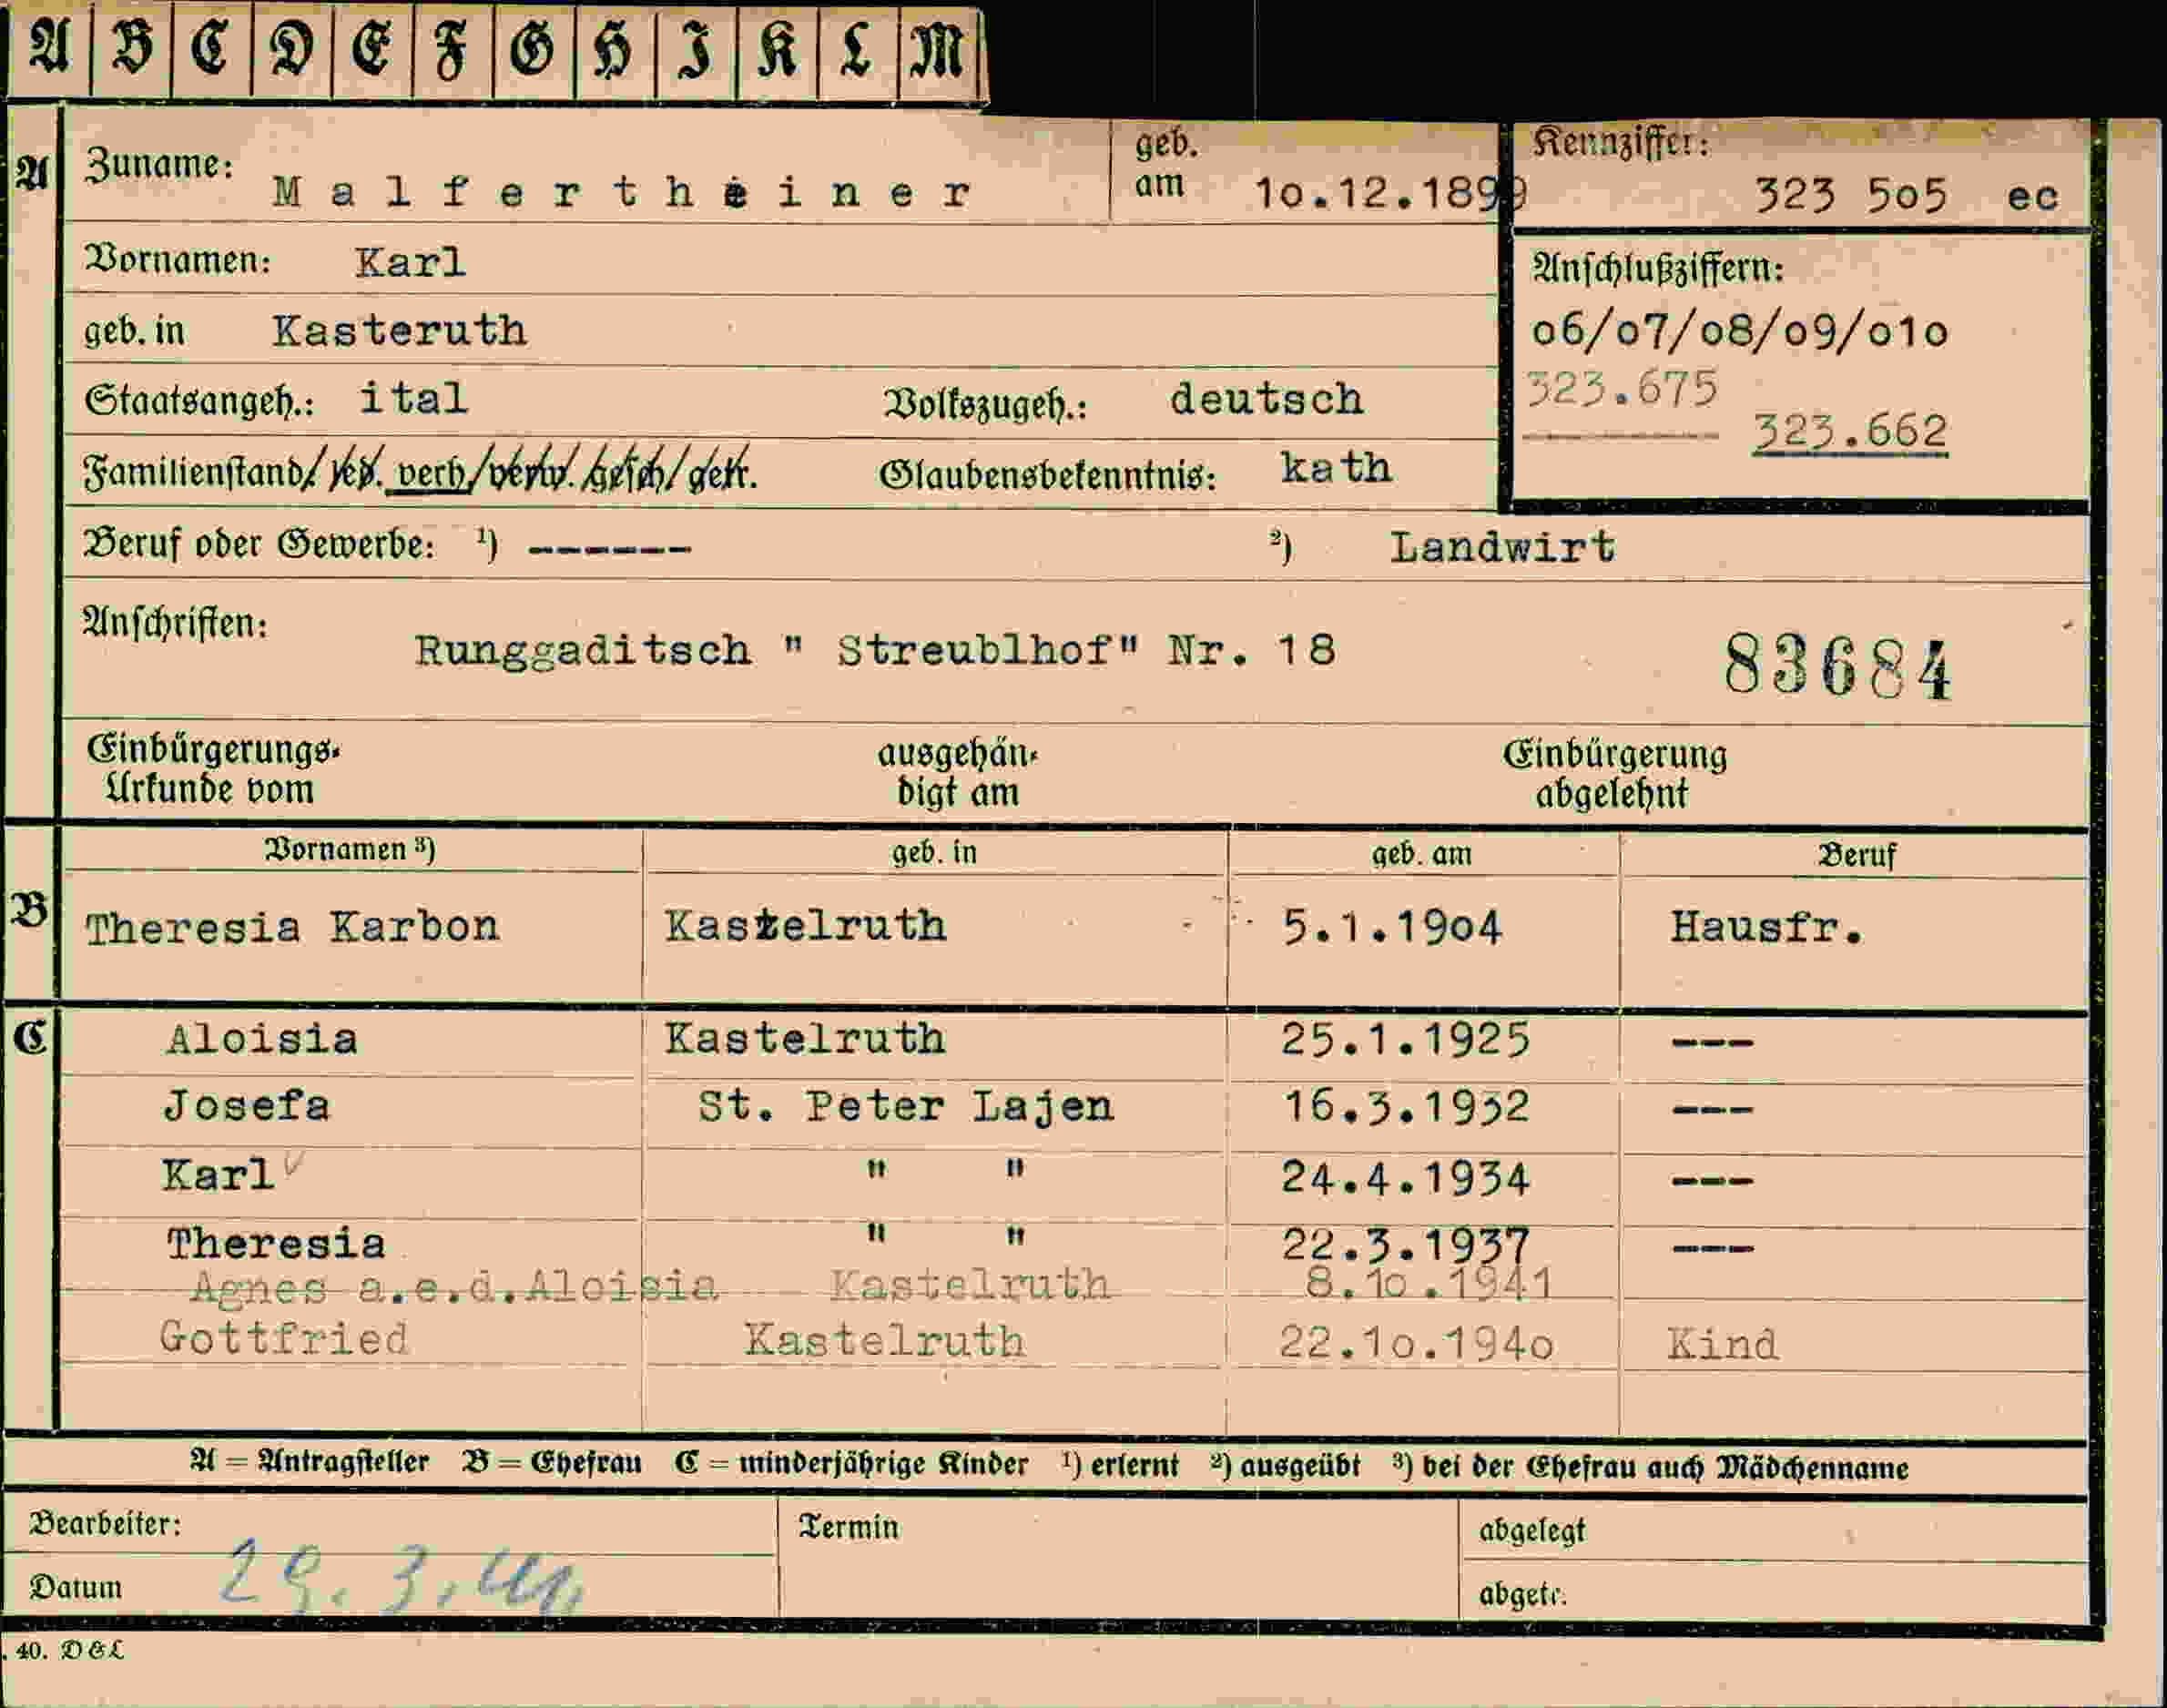 A B C D E F G H I K L M
A Zuname: Malfertheiner geb. am 10.12.1899 Kennziffer: 323 505 ec
Vornamen: Karl
Anschlußziffern:
geb. in Kasteruth
06/07/08/09/010
Staatsangeh.: ital Volkszugeh.: deutsch
323.675
------ 323.662
Familienstand/led. verh/verw. gesch/getr. Glaubensbekenntnis: kath
Beruf oder Gewerbe: ¹) ------ ²) Landwirt
Anschriften:
Runggaditsch " Streublhof" Nr. 18 83684
Einbürgerungs- ausgehän- Einbürgerung
Urkunde vom digt am abgelehnt
Vornamen ³) geb. in geb. am Beruf
B Theresia Karbon Kastelruth 5.1.1904 Hausfr.
C Aloisia Kastelruth 25.1.1925 ---
Josefa St. Peter Lajen 16.3.1932 ---
Karl " " 24.4.1934 ---
Theresia " " 22.3.1937 ---
Agnes a.e.d.Aloisia Kastelruth 8.10.1941
Gottfried Kastelruth 22.10.1940 Kind
A = Antragsteller B = Ehefrau C = minderjährige Kinder ¹) erlernt ²) ausgeübt ³) bei der Ehefrau auch Mädchenname
Bearbeiter: Termin abgelegt
Datum 29.3. abgetr.
. 40. D&L